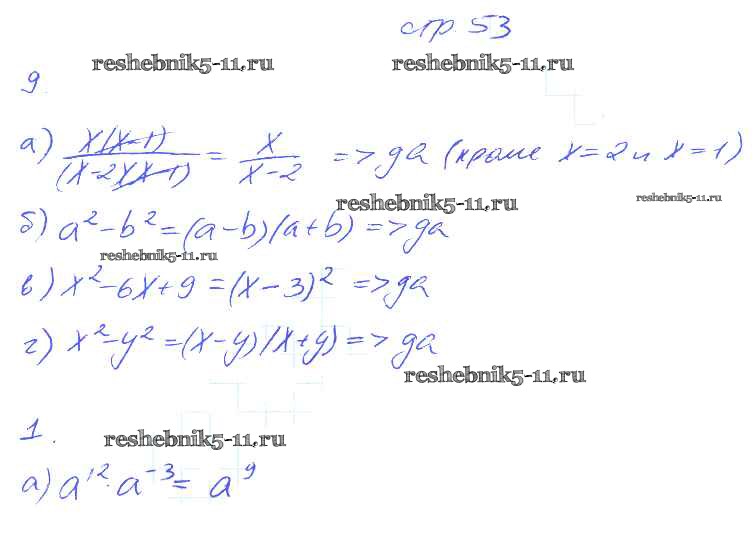 стр 53
reshebnik5-11.ru reshebnik5-11.ru
9
а) x(x-1)/(x-2)(x-1) = x/x-2 => да (кроме x=2 и x=1)
reshebnik5-11.ru reshebnik5-11.ru
б) a²-b²=(a-b)(a+b) => да
reshebnik5-11.ru
в) x²-6x+9=(x-3)² => да
г) x²-y²=(x-y)(x+y) => да
reshebnik5-11.ru
1.
reshebnik5-11.ru
а) a¹²·a⁻³= a⁹